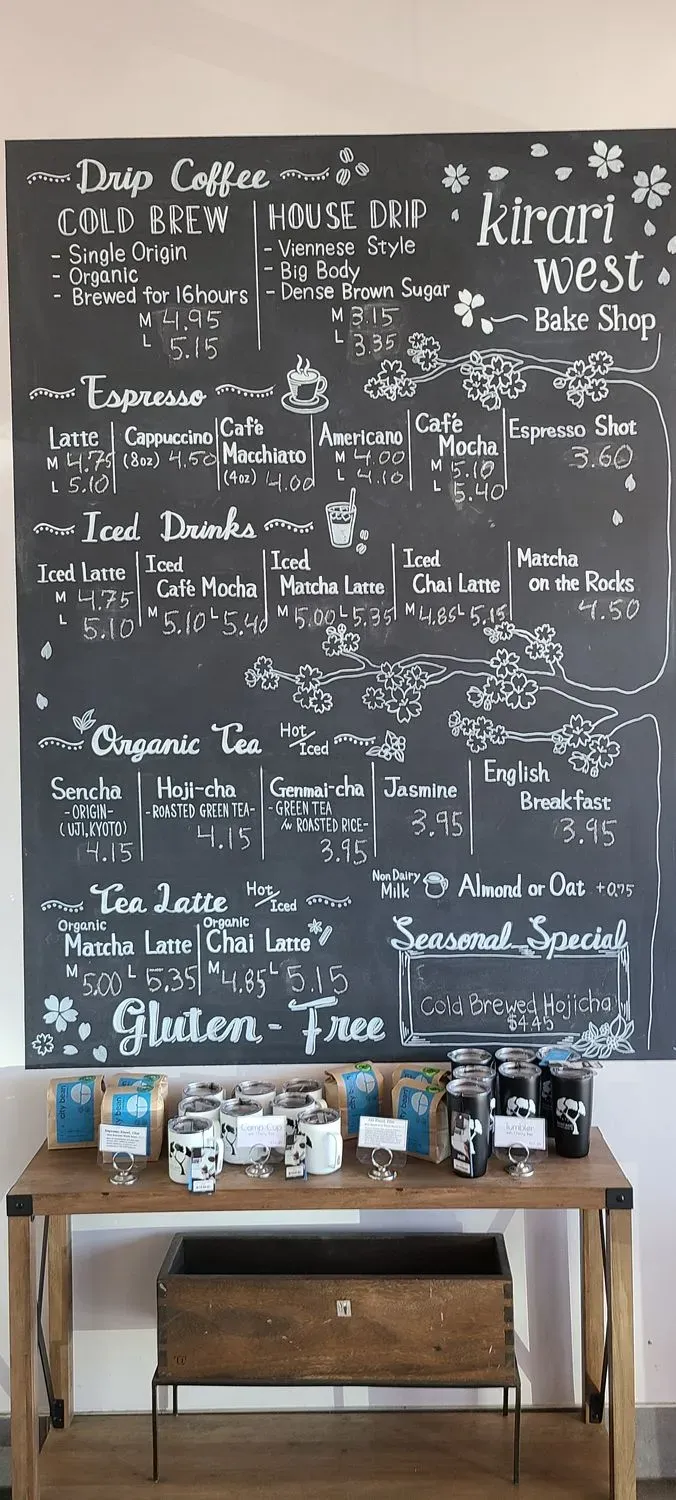 Drip Coffee
COLD BREW
- Single Origin
- Organic
- Brewed for 16hours
M 4.95
L 5.15
HOUSE DRIP
- Viennese Style
- Big Body
- Dense Brown Sugar
M 3.15
L 3.35
kirari
west
Bake Shop
Espresso
Latte
M 4.75
L 5.10
Cappuccino
(8oz) 4.50
Café
Macchiato
(4oz) 4.00
Americano
M 4.00
L 4.10
Café
Mocha
M 5.10
L 5.40
Espresso Shot
3.60
Iced Drinks
Iced Latte
M 4.75
L 5.10
Iced
Café Mocha
M 5.10 L 5.40
Iced
Matcha Latte
M 5.00 L 5.35
Iced
Chai Latte
M 4.85 L 5.15
Matcha
on the Rocks
4.50
Organic Tea Hot/Iced
Sencha
-ORIGIN-
(UJI,KYOTO)
4.15
Hoji-cha
-ROASTED GREEN TEA-
4.15
Genmai-cha
-GREEN TEA
/w ROASTED RICE-
3.95
Jasmine
3.95
English
Breakfast
3.95
Non Dairy
Milk
Almond or Oat +0.75
Tea Latte Hot/Iced
Organic
Matcha Latte
M 5.00 L 5.35
Organic
Chai Latte
M 4.85 L 5.15
Seasonal Special
Cold Brewed Hojicha
$4.45
Gluten-Free
city bean
city bean
Camp Cup
Tumbler